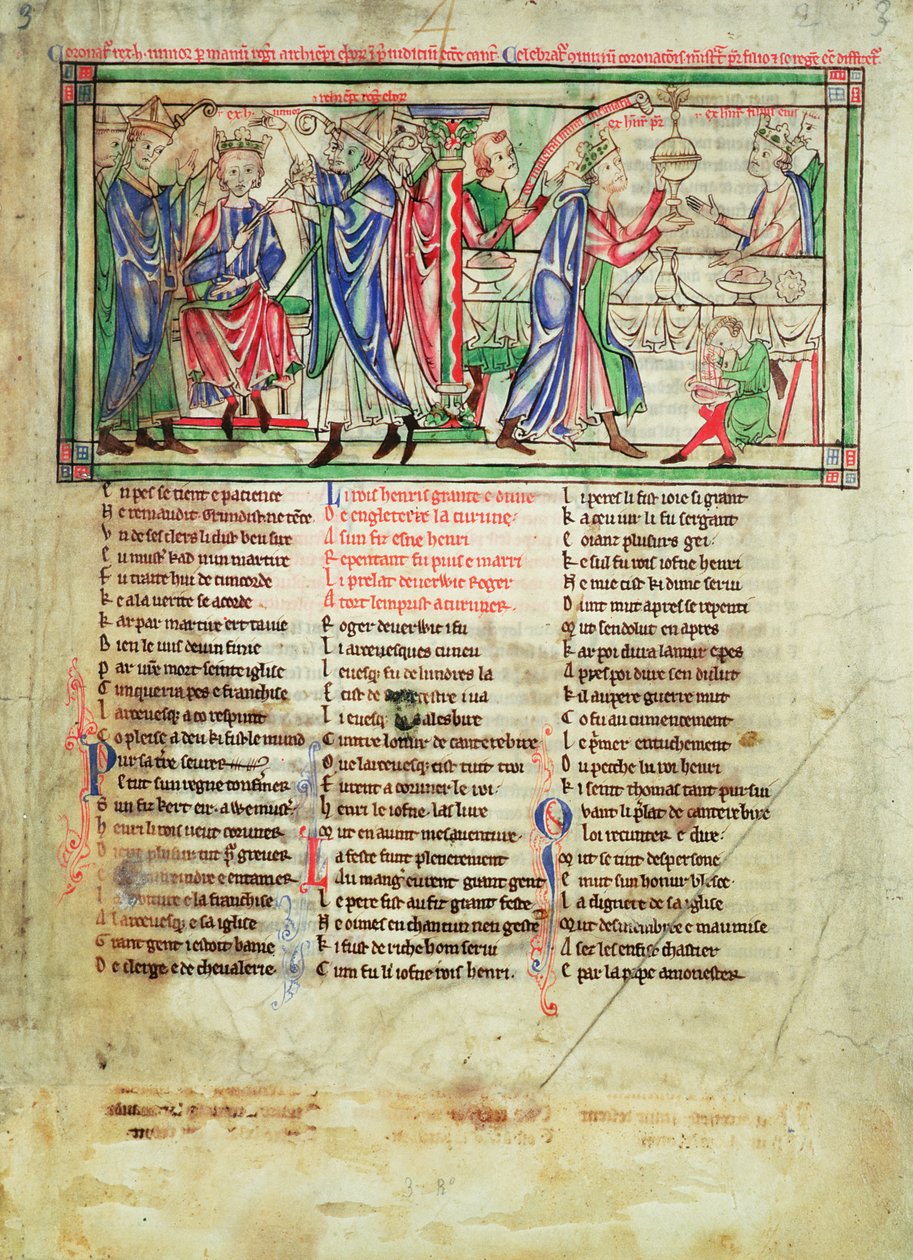 3
4
3
Coronat᷑ rex .h. iunior per manum rogeri archiepi ebor̃ ĩ p̃iudicium ecc̃e cant̃. Celebrat᷑ ꝯuiuium coronatõis. mĩst᷑t pr̃ filio ⁊ se regem eẽ diffitet᷑.
rogerus ebor
rex h. iunior
rex henr̃ pr̃
rex henr̃ filius eius
En pes se tient e pacience
Ne remaudit. Grundist ne tẽce
Vn de ses clers li dist beu sire
Eu must kad nun martire
Fu traite hui de cuncorde
Ke a la uerite se acorde
Kar par martire ert tauie
Bien le uus deuin finie
Par ur̃e mort seinte iglise
Cunquerra pes e franchise
Larceuesqꝫ a co respunt
Co pleise a deu ki fist le mund
Pur sa tr̃e seurer
E tut sun regne confirmer
Sun fiz kert eir. a Wemust᷑.
Henri li rois ueut coruner
De la franchise
Al arceuesqꝫ e sa iglise
Grant gent i estoit banie
De clerge e de cheualerie.
Li rois henris grante e dune
De engleterre la curune:
A sun fiz esne henri
Repentant fu puis e marri
Li prelat deuerwic Roger
A tort lemprist a curuner.
Roger deuerwic i fu
Li arceuesques cuneu
Leuesqꝫ fu de lundres la
E cist de rouecestre i ua
Li euesqꝫ de salesbire
Cuntre lonur de canterebire
Que larceuesqꝫ cist tuit troi
Furent a coruner le roi:
Henri le iofne. las liure
Mut en aunt mesauenture.
La feste funt plenerement
Au mang᷑ eurent grant gent
Le pere fist au fiz grant feste
Ne oimes en chantur neu geste
Ki fust de riche hom serui
Cum fu li iofne rois henri.
Li peres li fist ioie si grant
Ka ceu iur li fu sergant
E oianz plusurs gei:
Ke sul fu rois iofne henri
Ne mie cist ki dunc serui
Dunt mut apres se repenti
Mut sen dolut en apres
Kar poi dura lamur e pes
Apres poi dure sen dulut
Kil au pere guerre mut
Co fu au cumencement
Le p̃mer entuchement
Du pecche lu roi henri
Ki seint thomas tant pursui
Quant li p̃lat de canterebire
Loi recunter e dire:
Mut se tint despersone
E mut sun honur blesce.
La dignete de sa iglise
Mut desmembree e maumise
Asez les en fist chastier
E par la pape amonester
3 R°